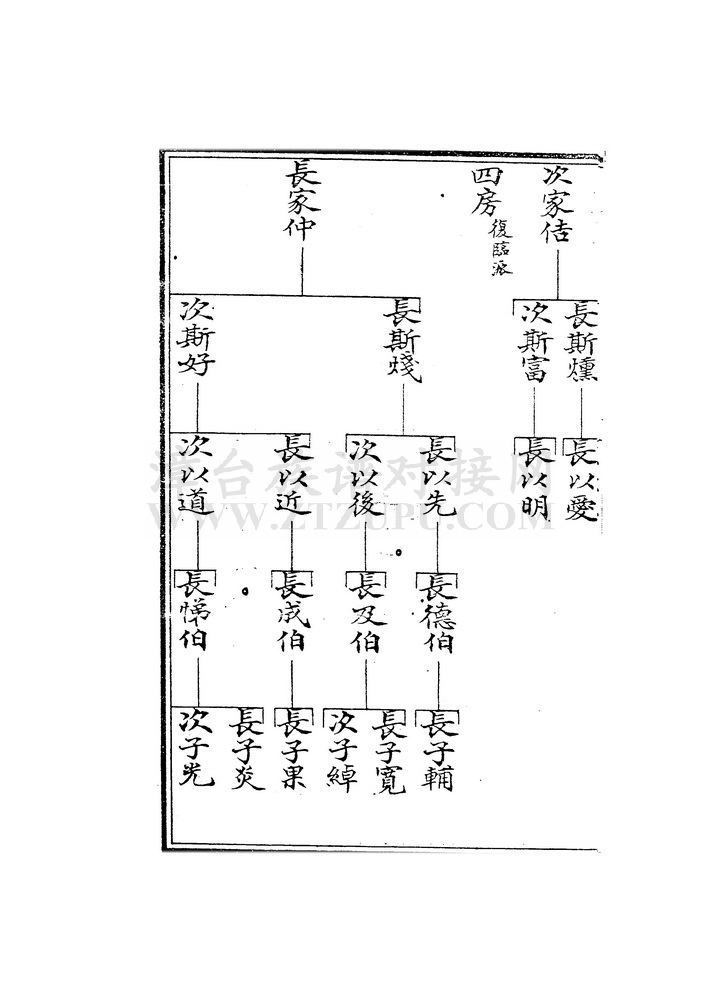 次家佶
四房復臨派
長家仲
長斯燻
次斯富
長斯燧
次斯好
長以愛
長以明
長以先
次以後
長以近
次以道
長德伯
長及伯
長成伯
長悌伯
長子輔
長子寬
次子綽
長子果
長子炎
次子光
漳台族谱对接网
WWW.ZTZUPU.COM